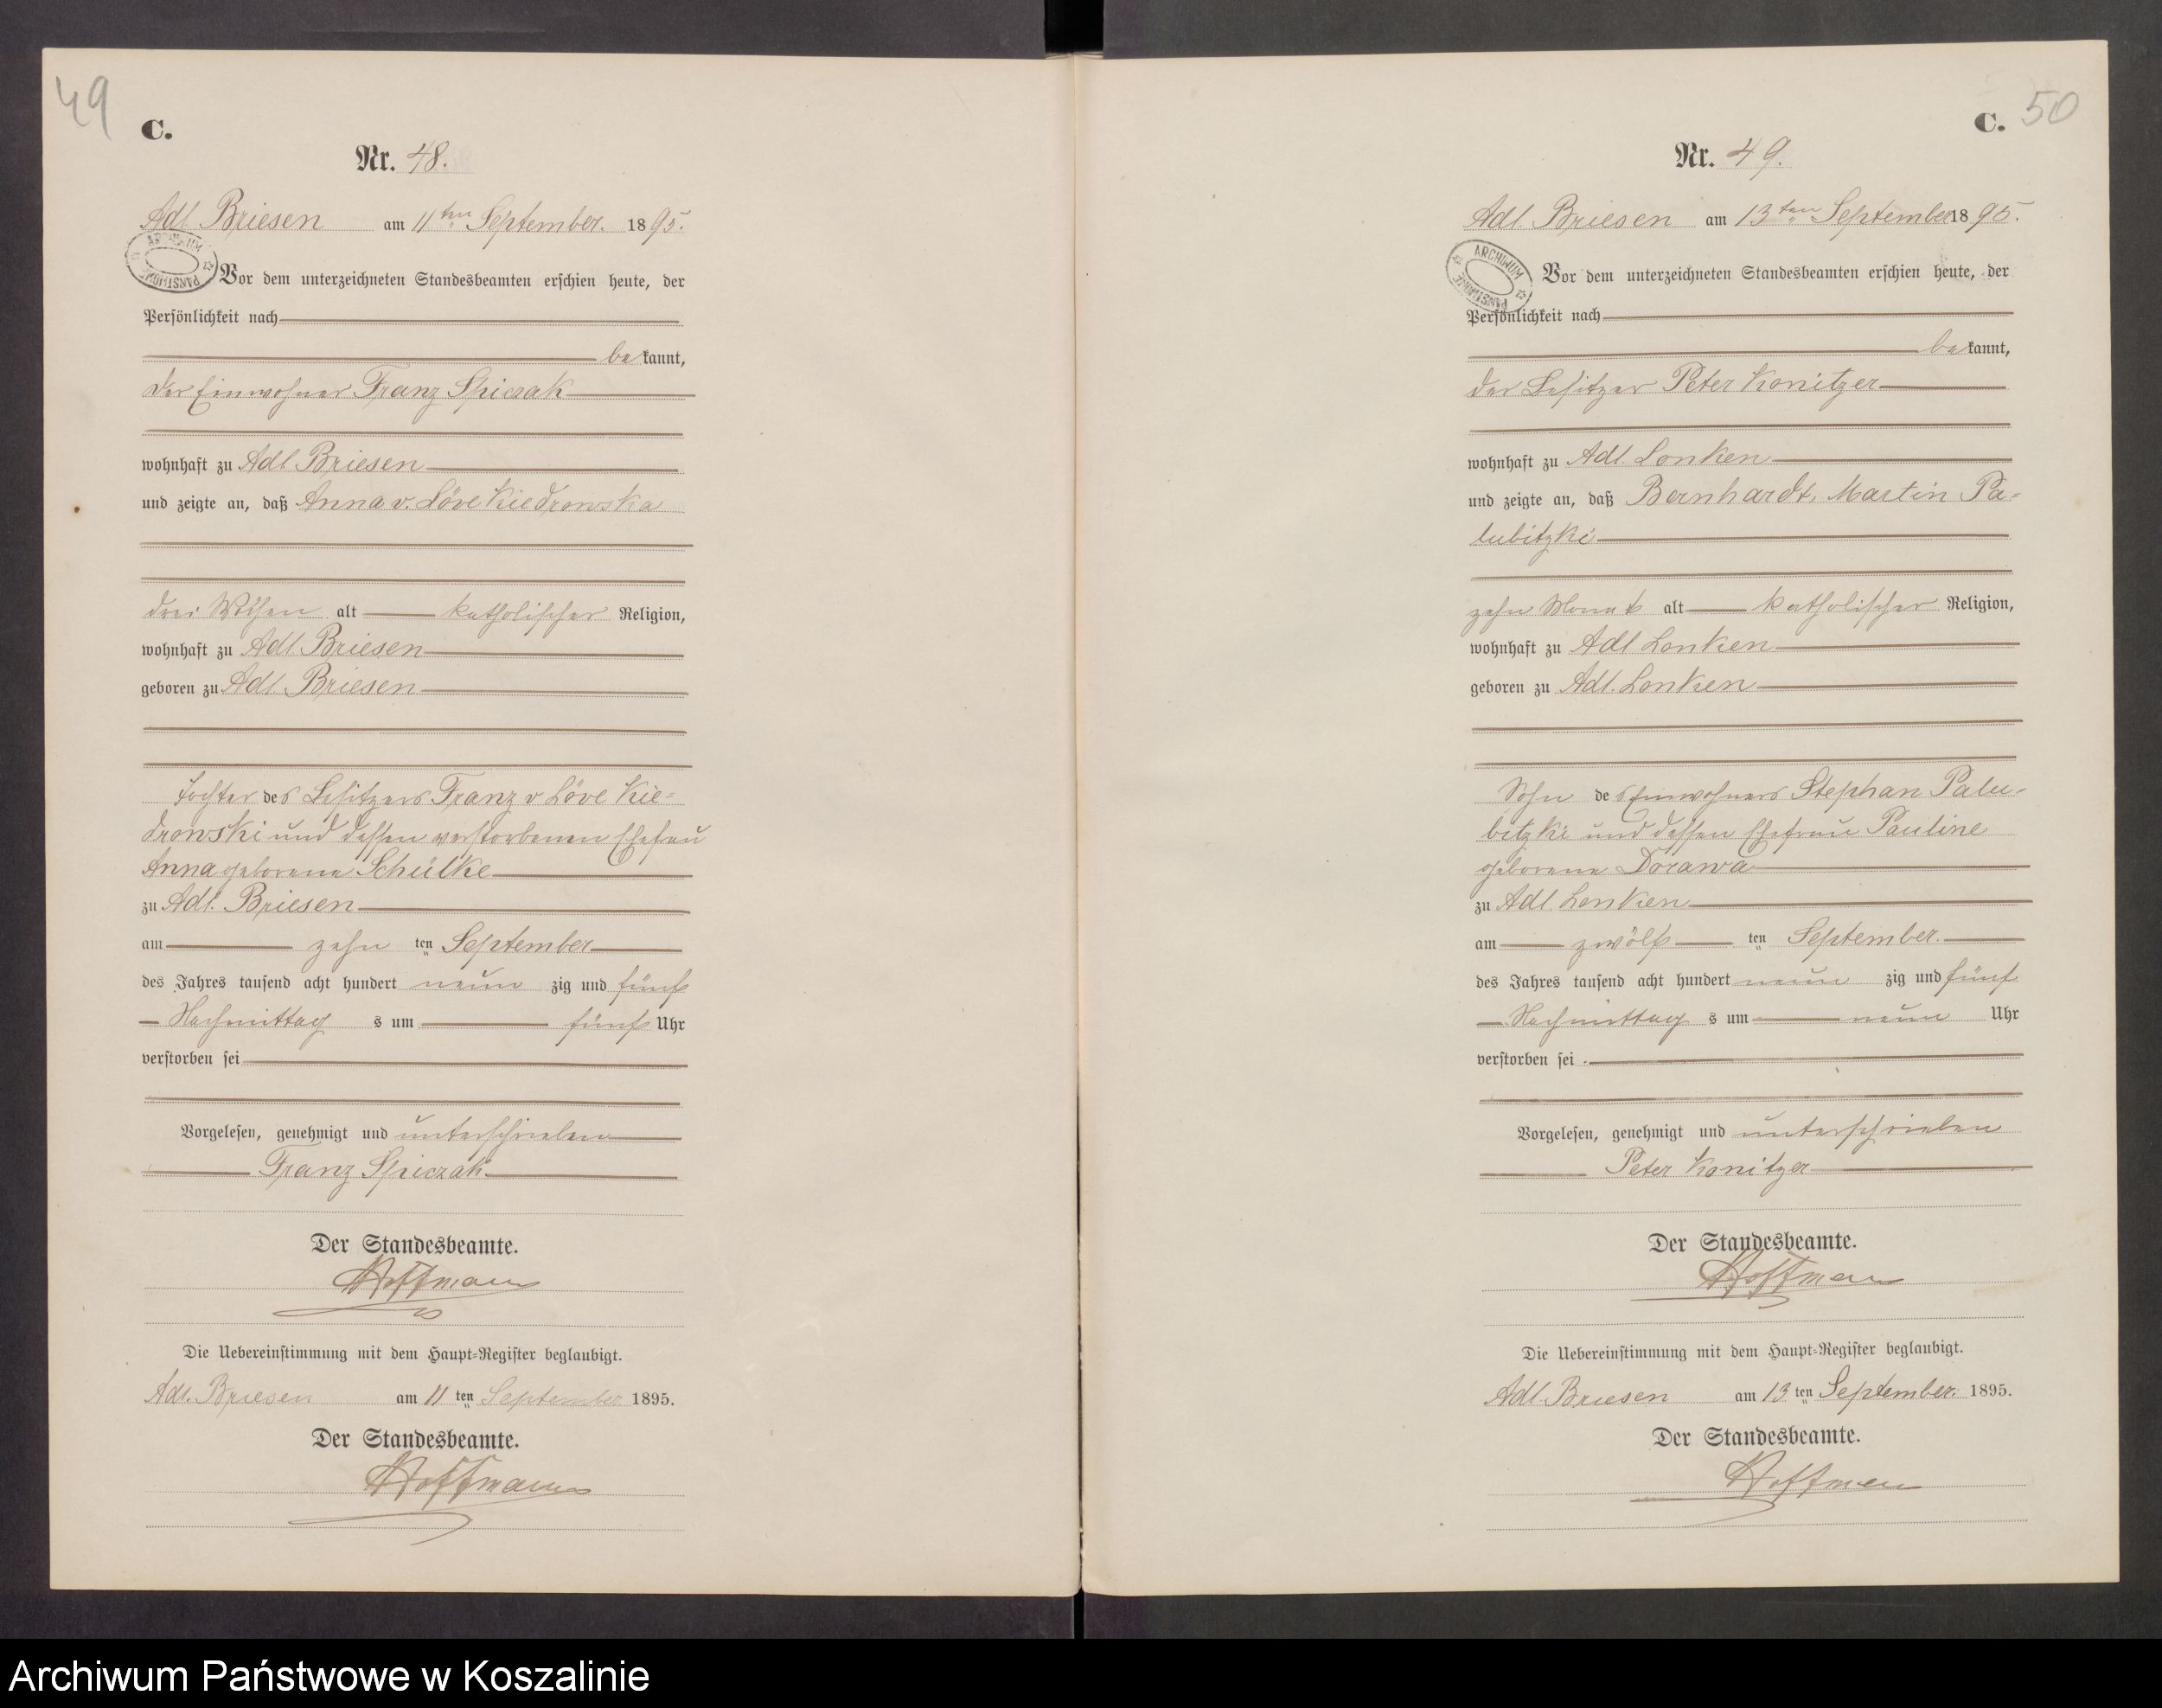 49
C.
Nr. 48.
Adl. Briesen am 11ten September. 1895.
ARCHIWUM PAŃSTWOWE
Vor dem unterzeichneten Standesbeamten erschien heute, der
Persönlichkeit nach
bekannt,
der Einwohner Franz Spiczak
wohnhaft zu Adl. Briesen
und zeigte an, daß Anna v. Löve Kiedrowska
drei Wochen alt katholischer Religion,
wohnhaft zu Adl. Briesen
geboren zu Adl. Briesen
Tochter des Besitzers Franz v Löve Kie=
drowski und dessen verstorbenen Ehefrau
Anna geborene Schülke
zu Adl. Briesen
am zehn ten September
des Jahres tausend acht hundert neun zig und fünf
Nachmittag s um fünf Uhr
verstorben sei
Vorgelesen, genehmigt und unterschrieben
Franz Spiczak
Der Standesbeamte.
Hoffmann
Die Uebereinstimmung mit dem Haupt=Register beglaubigt.
Adl. Briesen am 11 ten September 1895.
Der Standesbeamte.
Hoffmann
C. 50
Nr. 49.
Adl. Briesen am 13ten September 1895.
ARCHIWUM PAŃSTWOWE
Vor dem unterzeichneten Standesbeamten erschien heute, der
Persönlichkeit nach
bekannt,
der Besitzer Peter Konitzer
wohnhaft zu Adl. Lonken
und zeigte an, daß Bernhardt, Martin Pa=
lubitzki
zehn Monat alt katholischer Religion,
wohnhaft zu Adl Lonken
geboren zu Adl. Lonken
Sohn des Einwohners Stephan Palu=
bitzki und dessen Ehefrau Pauline
geborene Dorawa
zu Adl. Lonken
am zwölf ten September.
des Jahres tausend acht hundert neun zig und fünf
Nachmittag s um neun Uhr
verstorben sei
Vorgelesen, genehmigt und unterschrieben
Peter Konitzer
Der Standesbeamte.
Hoffmann
Die Uebereinstimmung mit dem Haupt=Register beglaubigt.
Adl. Briesen am 13 ten September. 1895.
Der Standesbeamte.
Hoffmann
Archiwum Państwowe w Koszalinie